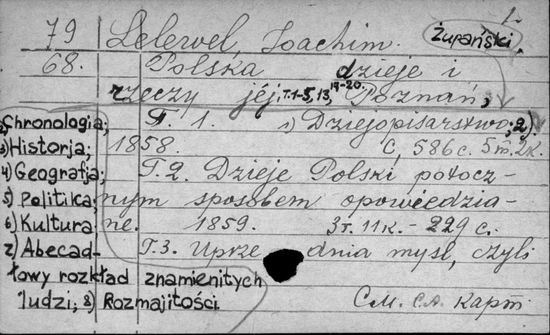 1.
79 Lelewel, Joachim. Żupański,
68. Polska dzieje i
rzeczy jéj, T.1-5, 13, 19-20. Poznań,
Chronologia; T. 1. 1) Dziejopisarstwo; 2)
3) Historja; 1858. C, 586 c. 5 m. 2 к.
4) Geografja; T. 2. Dzieje Polski potocz-
5) Polityka; nym sposobem opowiedzia-
6) Kultura; ne. 1859. 3 т. 11 к. - 229 c.
7) Abecad- T. 3. Uprze dnia myśl, czyli
łowy rozkład znamienitych
ludzi; 8) Rozmajitości. См. сл. карт